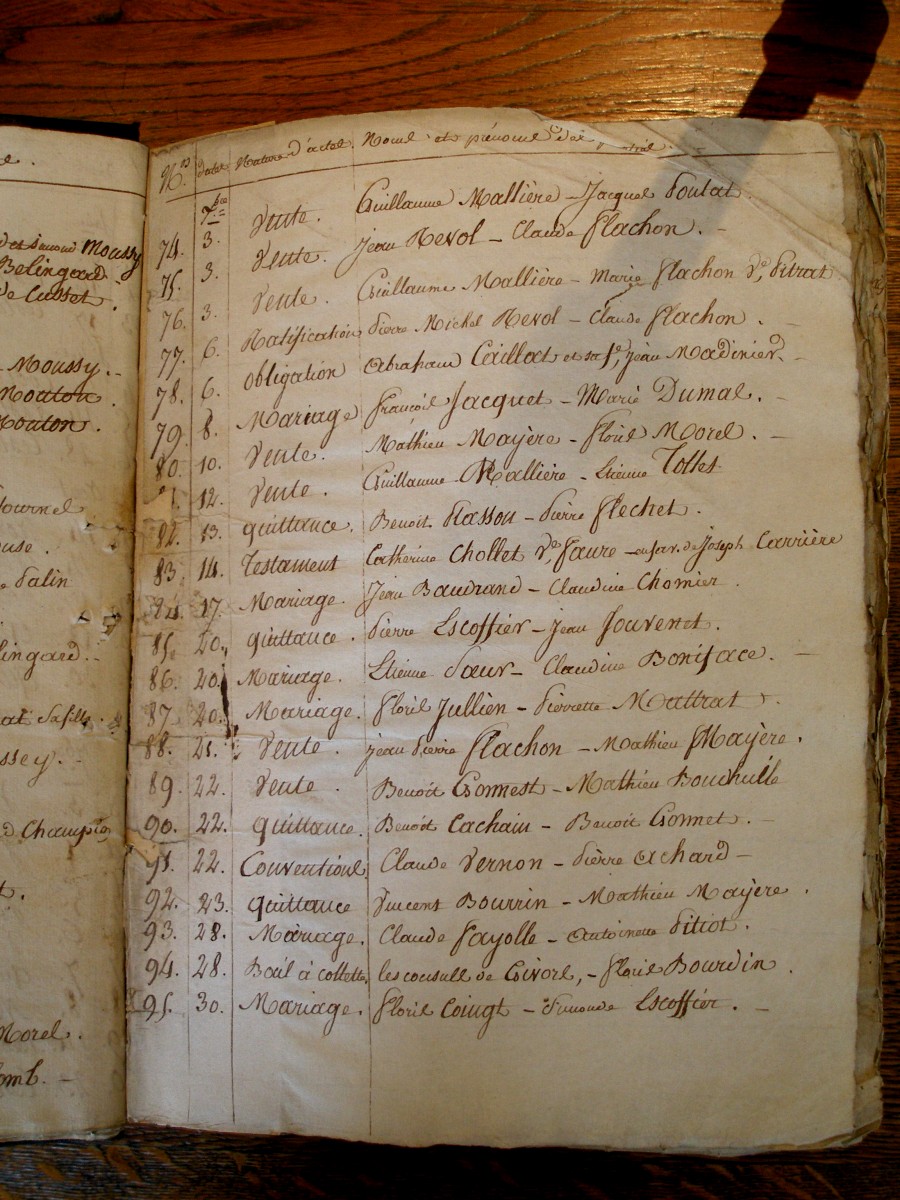 Nos. date Nature d'actes Noms et prénoms des
7bre
74. 3. Vente. Guillaume Mallière - Jacques Poulat.
75. 3. Vente. Jean Revol - Claude Flachon. -
76. 3. Vente. Guillaume Mallière - Marie Flachon Ve. Pitrat
77. 6. Ratification Pierre Michel Revol - Claude Flachon. -
78. 6. Obligation Abraham Caillat et sa fe, Jean Madinier. -
79. 8. Mariage François Jacquet - Marie Dumas. -
80. 10. Vente. Mathieu Mayère - Floris Morel. -
1. 12. Vente. Guillaume Mallière - Etienne Tolles
82. 13. Quittance. Benoit Plasson - Pierre Flechet.
83 14. Testament Catherine Chollet Ve. Faure - en fav. de Joseph Carrière
84. 17. Mariage. Jean Baudrand - Claudine Chomier.
85. 20. Quittance. Pierre Escoffier - Jean Jouvenet.
86. 20. Mariage. Etienne Sœur - Claudine Boniface. -
87. 20. Mariage. Floris Jullien - Pierrette Mattrat.
88. 21. Vente. Jean Pierre Flachon - Mathieu Mayère.
89. 22. Vente. Benoit Gonnest - Mathieu
90. 22. Quittance. Benoit Cachain - Benoit Gonnet. -
91. 22. Conventions Claude Vernon - Pierre Achard -
92. 23. Quittance Vincent Bourrin - Mathieu Mayère.
93. 28. Mariage. Claude Fayolle - Antoinette Pitiot.
94. 28. Bail à collette, les consuls de Givors, - Floris Bourdin.
95. 30. Mariage. Floris Coingt - Simonde Escoffier. -
Moussy
Belingard
de Cusset.
Moussy. -
Mouton.
Mouton.
Fournel
Palin
lingard. -
sa fille.
ssey. -
Champion
Morel.
omb. -